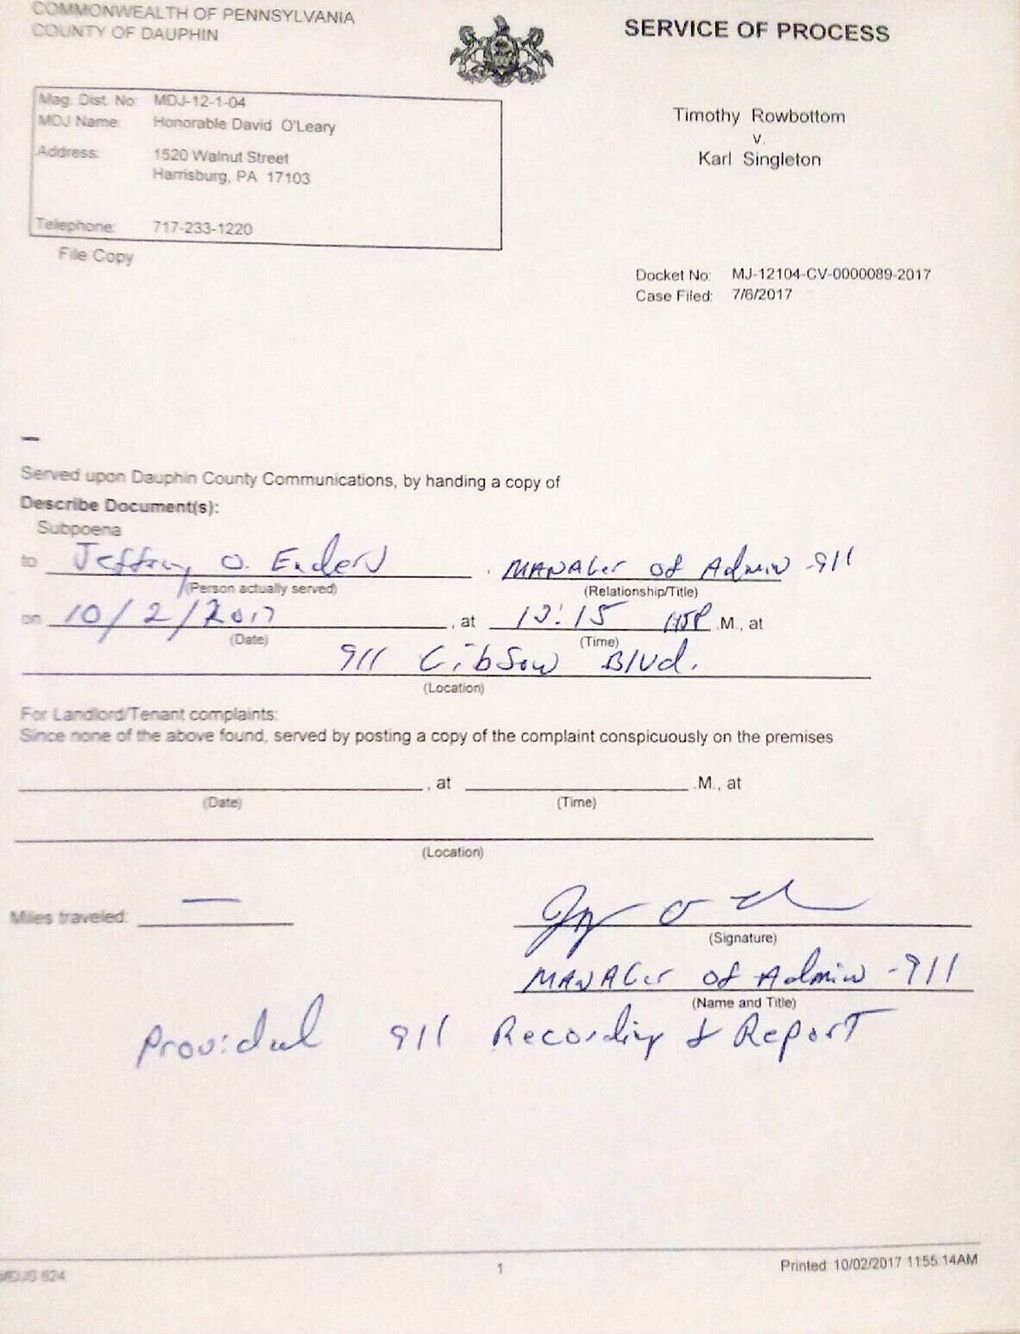 COMMONWEALTH OF PENNSYLVANIA
COUNTY OF DAUPHIN
SERVICE OF PROCESS
Mag. Dist. No: MDJ-12-1-04
MDJ Name: Honorable David O'Leary
Address: 1520 Walnut Street
Harrisburg, PA 17103
Telephone: 717-233-1220
File Copy
Timothy Rowbottom
v.
Karl Singleton
Docket No: MJ-12104-CV-0000089-2017
Case Filed: 7/6/2017
Served upon Dauphin County Communications, by handing a copy of
Describe Document(s):
Subpoena
to Jeffrey O. Enders, MANAGer of Admin -911
(Person actually served) (Relationship/Title)
on 10/2/2017, at :15 .M., at
(Date) (Time)
911 Gibson Blvd.
(Location)
For Landlord/Tenant complaints:
Since none of the above found, served by posting a copy of the complaint conspicuously on the premises
, at .M., at
(Date) (Time)
(Location)
Miles traveled: —
(Signature)
MANAGer of Admin -911
(Name and Title)
Provided 911 Recording & Report
MDJS 624
1
Printed: 10/02/2017 11:55:14AM